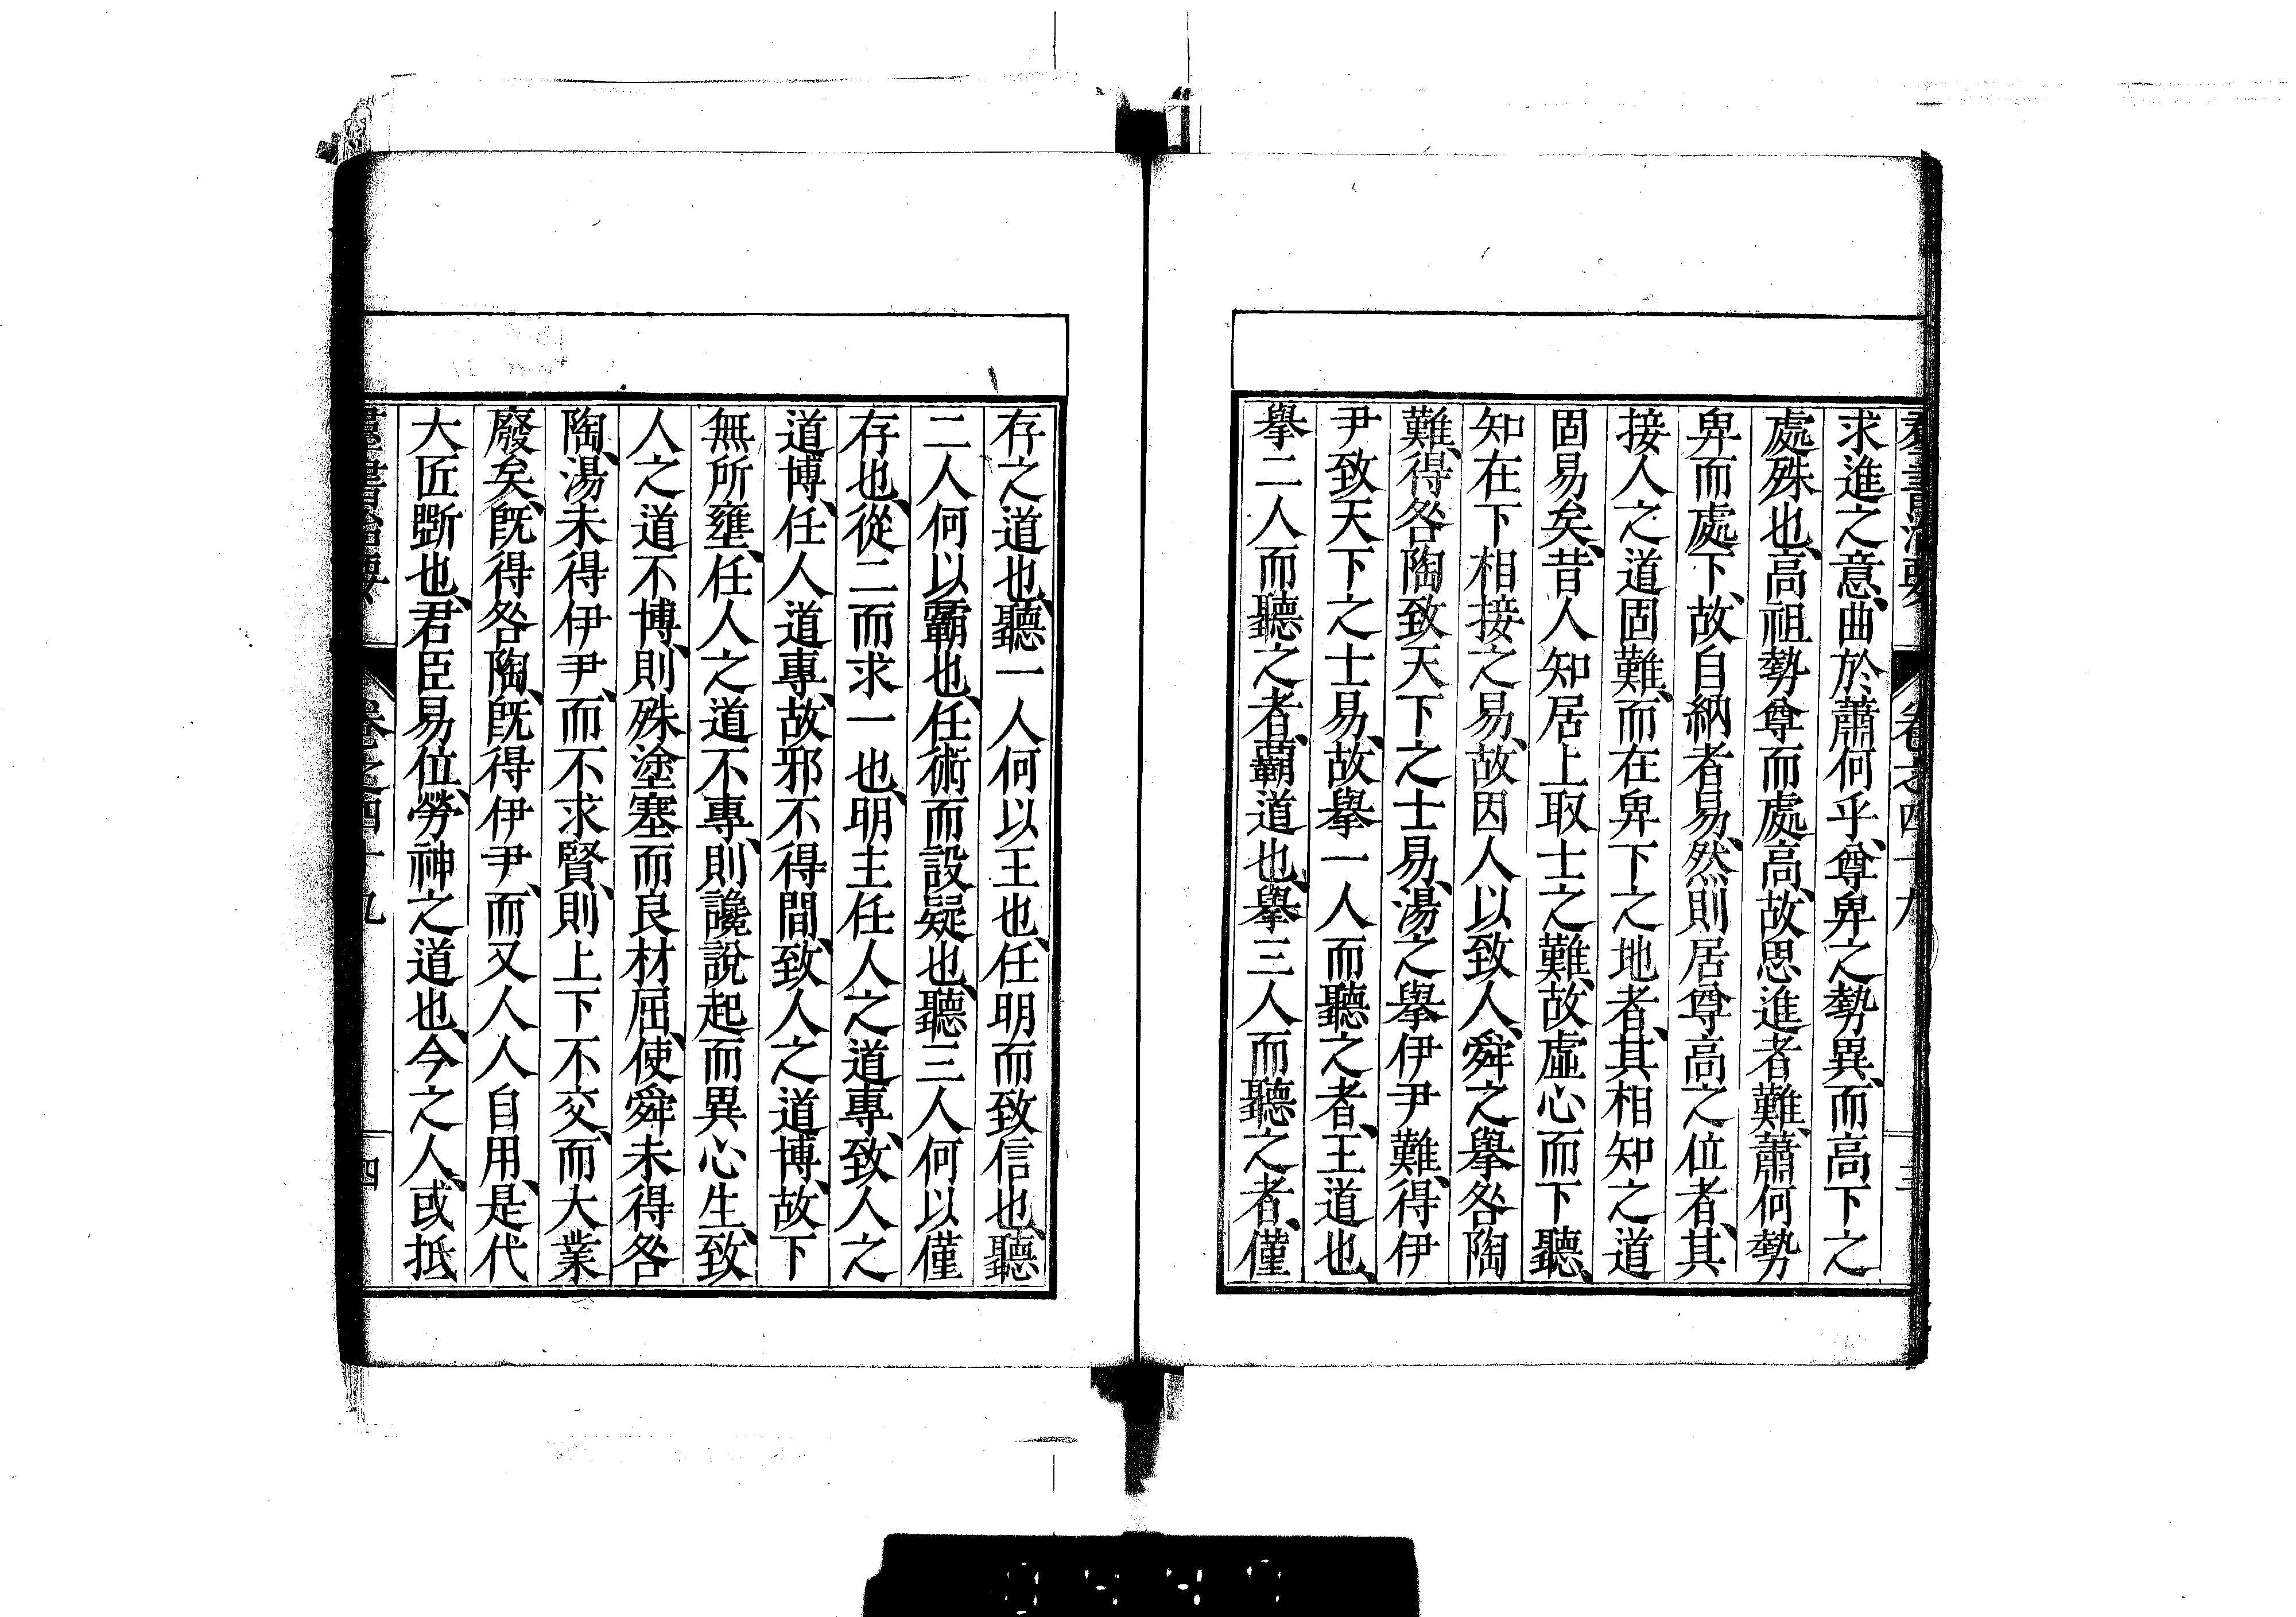 羣書治要 卷之四十九 三
求進之意、曲於蕭何乎、尊卑之勢異、而高下之
處殊也、高祖勢尊而處高、故思進者難、蕭何勢
卑而處下、故自納者易、然則居尊高之位者、其
接人之道固難、而在卑下之地者、其相知之道
固易矣、昔人知居上取士之難、故虛心而下聽、
知在下相接之易、故因人以致人、舜之擧咎陶
難、得咎陶致天下之士易、湯之擧伊尹難、得伊
尹致天下之士易、故擧一人而聽之者、王道也、
擧二人而聽之者、霸道也、擧三人而聽之者、僅
存之道也、聽一人何以王也、任明而致信也、聽
二人何以霸也、任術而設疑也、聽三人何以僅
存也、從二而求一也、明主任人之道專、致人之
道博、任人道專、故邪不得間、致人之道博、故下
無所壅、任人之道不專、則讒說起而異心生、致
人之道不博、則殊塗塞而良材屈、使舜未得咎
陶、湯未得伊尹、而不求賢、則上下不交、而大業
廢矣、旣得咎陶、旣得伊尹、而又人人自用、是代
大匠斲也、君臣易位、勞神之道也、今之人、或抵
羣書治要 卷之四十九 四